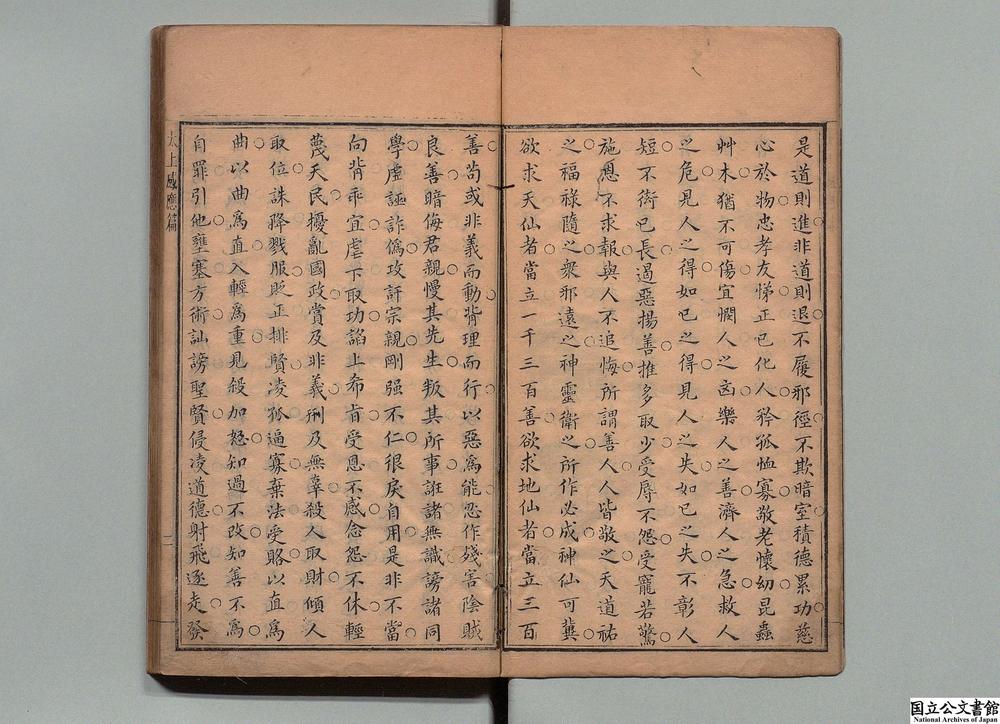 是道則進非道則退不履邪徑不欺暗室積德累功慈
心於物忠孝友悌正己化人矜孤恤寡敬老懷幼昆蟲
艸木猶不可傷宜憫人之凶樂人之善濟人之急救人
之危見人之得如己之得見人之失如己之失不彰人
短不衒己長遏惡揚善推多取少受辱不怨受寵若驚
施恩不求報與人不追悔所謂善人人皆敬之天道祐
之福祿隨之衆邪遠之神靈衛之所作必成神仙可冀
欲求天仙者當立一千三百善欲求地仙者當立三百
善苟或非義而動背理而行以惡為能忍作殘害陰賊
良善暗侮君親慢其先生叛其所事誑諸無識謗諸同
學虛誣詐偽攻訐宗親剛强不仁很戾自用是非不當
向背乖宜虐下取功諂上希旨受恩不感念怨不休輕
蔑天民擾亂國政賞及非義刑及無辜殺人取財傾人
取位誅降戮服貶正排賢凌孤逼寡棄法受賂以直為
曲以曲為直入輕為重見殺加怒知過不改知善不為
自罪引他壅塞方術訕謗聖賢侵凌道德射飛逐走發
太上感應篇
二
国立公文書館
National Archives of Japan